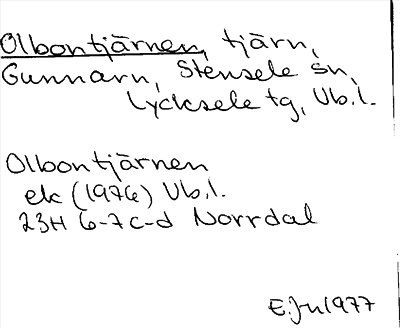 Olbontjärnen, tjärn,
Gunnarn, Stensele sn,
Lycksele tg, Vb.l.
Olbontjärnen
ek (1976) Vb.l.
23H 6-7c-d Norrdal
E.Ju 1977